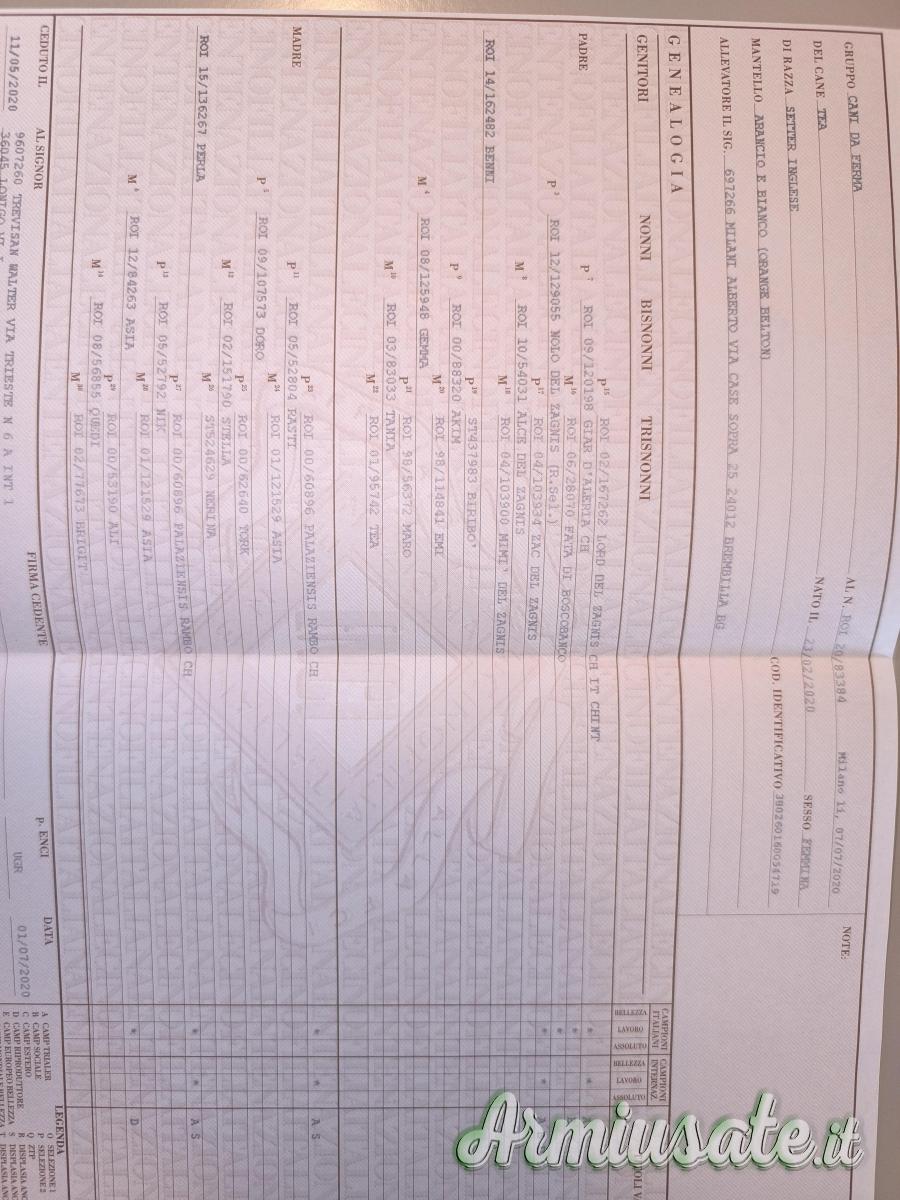 GRUPPO CANI DA FERMA AL N. ROI 20/83384 Milano li, 07/07/2020
DEL CANE TEA NATO IL 23/02/2020 SESSO FEMMINA
DI RAZZA SETTER INGLESE COD. IDENTIFICATIVO
MANTELLO ARANCIO E BIANCO (ORANGE BELTON)
ALLEVATORE IL SIG. 697266 MILANI ALBERTO VIA CASE SOPRA 25 24012 BREMBILLA BG
NOTE:
GENEALOGIA
GENITORI NONNI BISNONNI TRISNONNI
CAMPIONI ITALIANI CAMPIONI INTERNAZ.
BELLEZZA LAVORO ASSOLUTO BELLEZZA LAVORO ASSOLUTO
P 15 ROI 02/167262 LORD DEL ZAGNIS CH IT CHINT
P 7 ROI 09/120198 GIAR D'ALERIA CH
M 16 ROI 06/28070 FATA DI BOSCOBANCO
P 3 ROI 12/129055 NOLO DEL ZAGNIS (R.Sel.)
P 17 ROI 04/103934 ZAC DEL ZAGNIS
M 8 ROI 10/54031 ALCE DEL ZAGNIS
M 18 ROI 04/103900 MIMI' DEL ZAGNIS
PADRE
ROI 14/162482 BENNI
P 19 ST437983 BIRIBO'
P 9 ROI 00/88320 AKIM
M 20 ROI 98/114841 EMI
M 4 ROI 08/125948 GEMMA
P 21 ROI 98/56372 MARO
M 10 ROI 03/83033 TANIA
M 22 ROI 01/95742 TEA
P 23 ROI 00/60896 PALAZIENSIS RAMBO CH
P 11 ROI 05/52804 RASTI
M ROI 01/121529 ASIA
P 5 ROI 09/107573 DORO
P 25 ROI 00/62640 YORK
M 12 ROI 02/151790 STELLA
M 26 ST524629 NERINA
MADRE
ROI 15/136267 PERLA
P 27 ROI 00/60896 PALAZIENSIS RAMBO CH
P 13 ROI 05/52792 NIK
M 28 ROI 01/121529 ASIA
M 6 ROI 12/84263 ASIA
P 29 ROI 00/53190 ALI
M 14 ROI 08/56855 QUEDI
M 30 ROI 02/77673 BRIGIT
A S
A S
D
CEDUTO IL AL SIGNOR FIRMA CEDENTE p. ENCI DATA
11/05/2020 9607260 TREVISAN WALTER VIA TRIESTE N 6 A INT 1 UGR 01/07/2020
36045 LONIGO VI
LEGENDA
A CAMP TRIALER O SELEZIONE 1
B CAMP SOCIALE P SELEZIONE 2
C CAMP ESTERO Q ZTP
D CAMP RIPRODUTTORE R DISPLASIA ANC
E CAMP EUROPEO BELLEZZA S DISPLASIA ANC
Armiusate.it